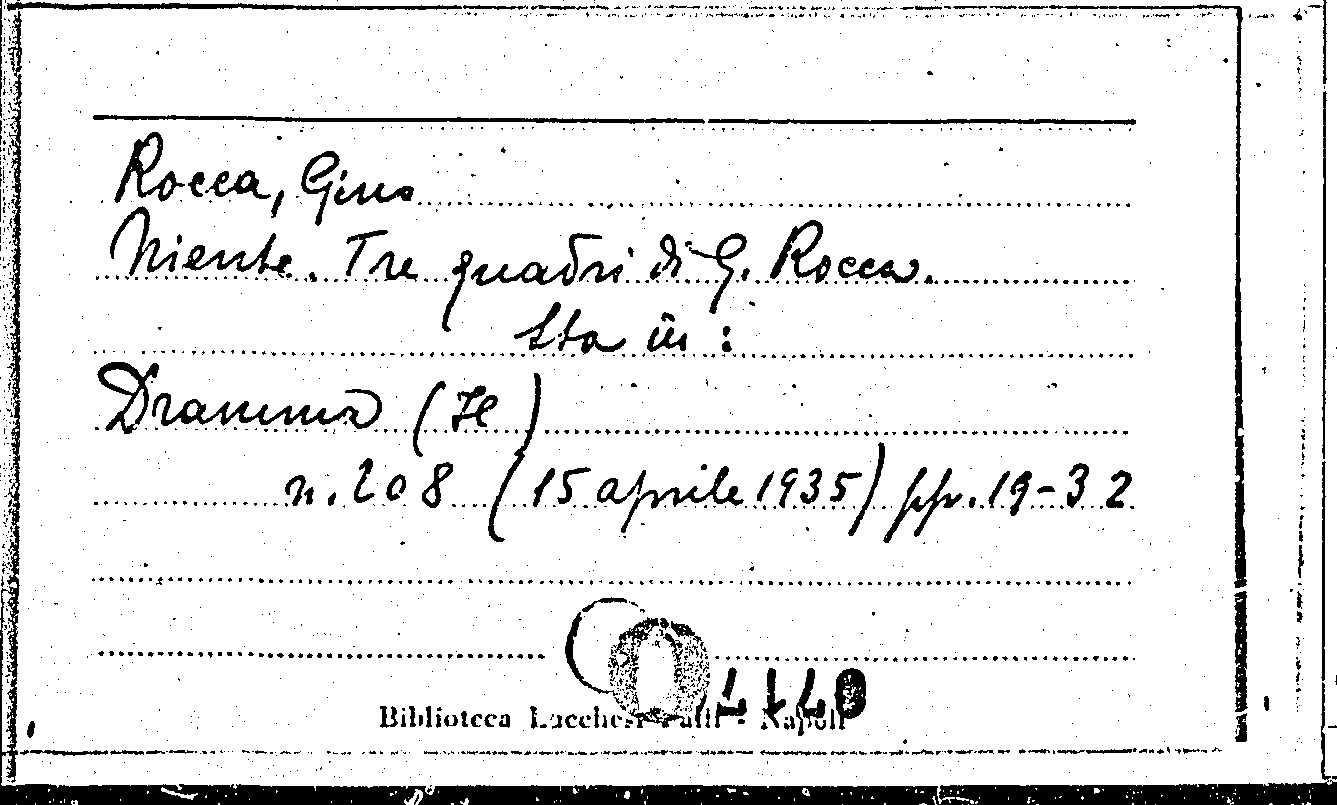 Rocca, Gino
Niente. Tre quadri di G. Rocca.
Sta in :
Dramma (Il)
n. 208 (15 aprile 1935) pp. 19-32
Biblioteca Lucchesi Palli - Napoli